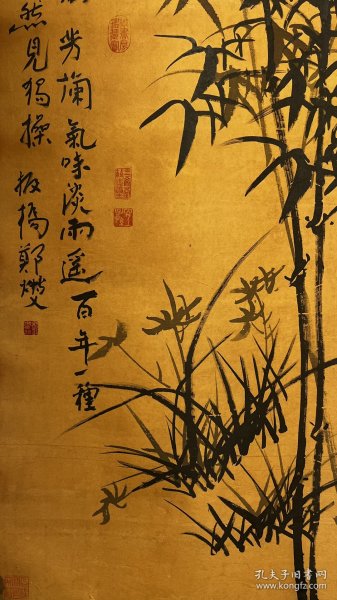 芳蘭氣味淡而遥百年一種
然見獨操 板橋鄭燮
孔夫子旧书网
www.kongfz.com